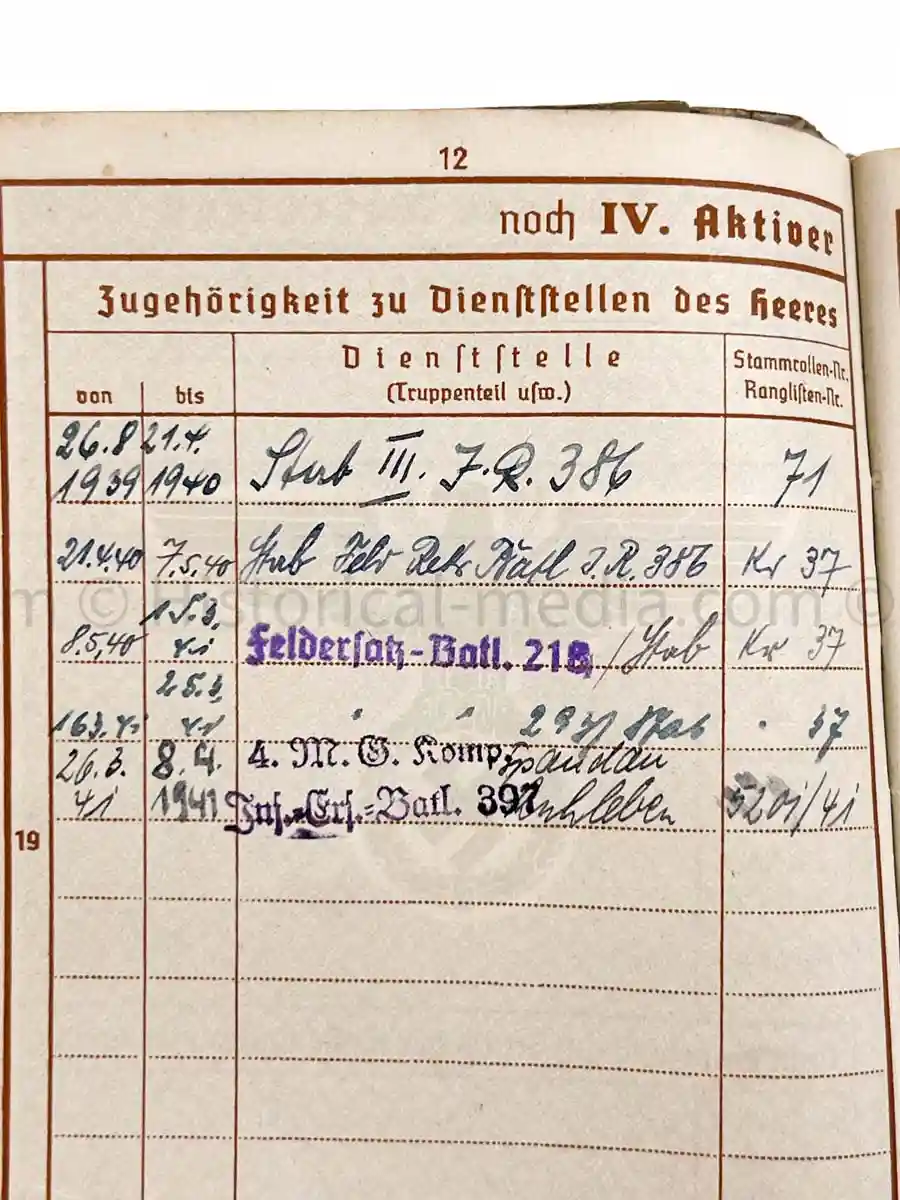 12
noch IV. Aktiver
Zugehörigkeit zu Dienststellen des Heeres
von bis
Dienststelle
(Truppenteil usw.)
Stammrollen-Nr.
Ranglisten-Nr.
26.8 21.4.
1939 1940 Stab III. J.R. 386 71
21.4.40 7.5.40 Stab Feld Batl J.R. 386 Kr 37
15.3.
8.5.40 41 Feldersatz-Batl. 218 / Stab Kr 37
25.3.
16.3.41 41 " " 293/ Stab " 37
26.3. 8.4. 4. M. G. Komp. Spandau
41 1941 Inf.-Ers.-Batl. 397 Ruhleben 5201/41
19
© Historical-media.com ©